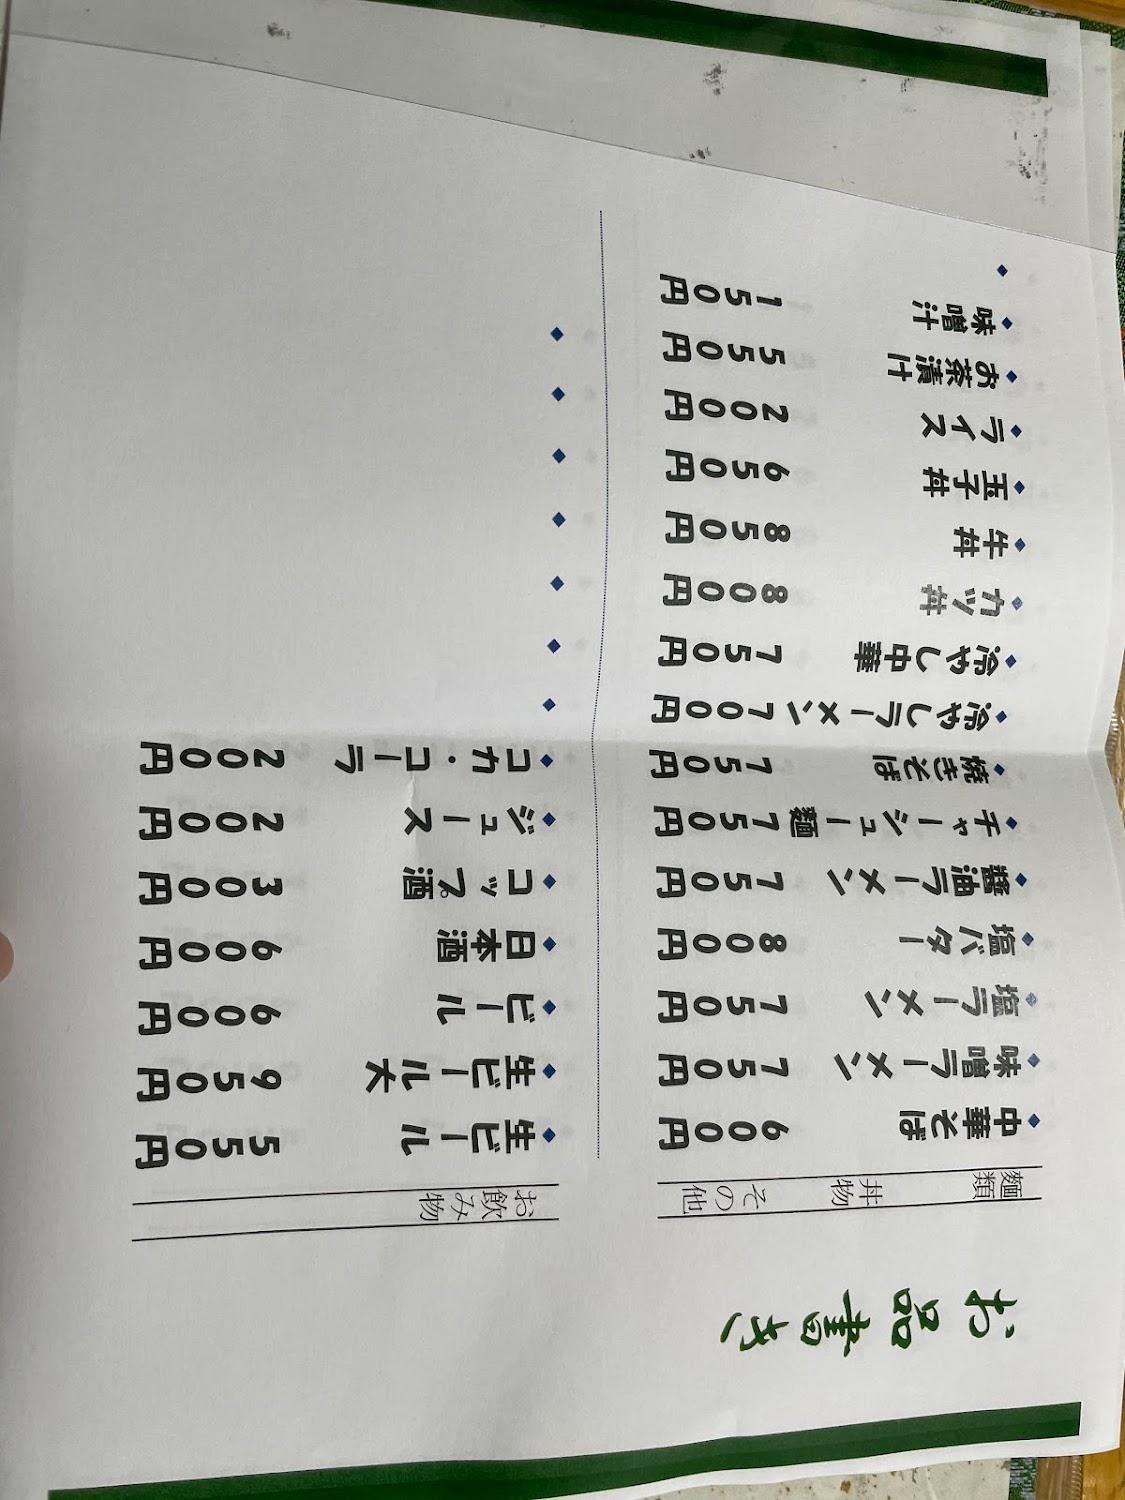 お品書き
麺類 丼物 その他
中華そば 600円
味噌ラーメン 750円
塩ラーメン 750円
塩バター 800円
醤油ラーメン 750円
チャーシュー麺 750円
焼きそば 750円
冷やしラーメン 700円
冷やし中華 750円
カツ丼 800円
牛丼 850円
玉子丼 650円
ライス 200円
お茶漬け 550円
味噌汁 150円
お飲み物
生ビール 550円
生ビール大 950円
ビール 600円
日本酒 600円
コップ酒 300円
ジュース 200円
コカ・コーラ 200円